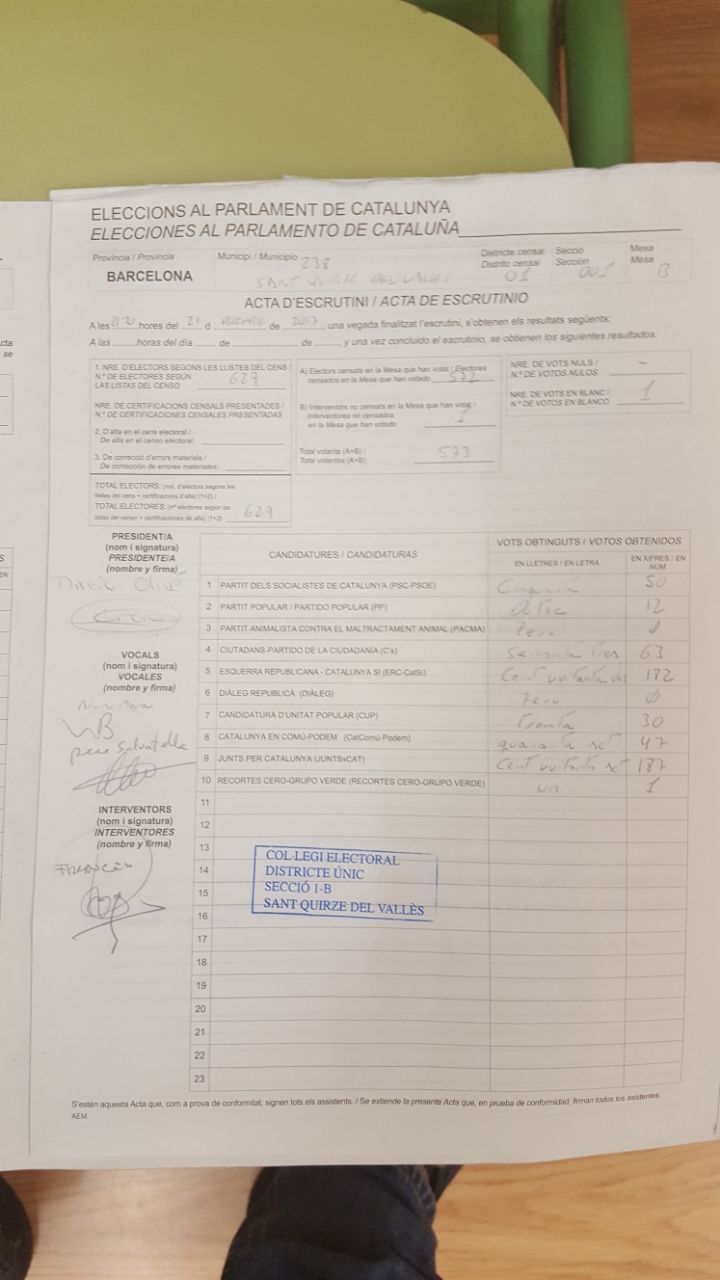 cta
se
ELECCIONS AL PARLAMENT DE CATALUNYA
ELECCIONES AL PARLAMENTO DE CATALUÑA
Província / Provincia
BARCELONA
Municipi / Municipio 238
SANT QUIRZE DEL VALLES
Districte censal
Distrito censal
01
Secció
Sección
001
Mesa
Mesa
B
ACTA D'ESCRUTINI / ACTA DE ESCRUTINIO
A les hores del 21 d de 2017, una vegada finalitzat l'escrutini, s'obtenen els resultats següents:
A las horas del día de de y una vez concluido el escrutinio, se obtienen los siguientes resultados:
1. NRE. D'ELECTORS SEGONS LES LLISTES DEL CENS /
N.º DE ELECTORES SEGÚN
LAS LISTAS DEL CENSO 629
NRE. DE CERTIFICACIONS CENSALS PRESENTADES /
N.º DE CERTIFICACIONES CENSALES PRESENTADAS
2. D'alta en el cens electoral /
De alta en el censo electoral:
3. De correcció d'errors materials /
De corrección de errores materiales:
TOTAL ELECTORS: (nre. d'electors segons les
llistes del cens + certificacions d'alta) (1+2) /
TOTAL ELECTORES: (nº electores según las
listas del censo + certificaciones de alta) (1+2) 629
A) Electors censats en la Mesa que han votat / Electores
censados en la Mesa que han votado 572
B) Interventors no censats en la Mesa que han votat /
Interventores no censados
en la Mesa que han votado 1
Total votants (A+B) /
Total votantes (A+B) 573
NRE. DE VOTS NULS /
N.º DE VOTOS NULOS -
NRE. DE VOTS EN BLANC /
N.º DE VOTOS EN BLANCO 1
PRESIDENT/A
(nom i signatura)
PRESIDENTE/A
(nombre y firma)
VOCALS
(nom i signatura)
VOCALES
(nombre y firma)
pere Salvatella
INTERVENTORS
(nom i signatura)
INTERVENTORES
(nombre y firma)
CANDIDATURES / CANDIDATURAS
VOTS OBTINGUTS / VOTOS OBTENIDOS
EN LLETRES / EN LETRA
EN XIFRES / EN NÚM
1 PARTIT DELS SOCIALISTES DE CATALUNYA (PSC-PSOE) Cinquanta 50
2 PARTIT POPULAR / PARTIDO POPULAR (PP) dotze 12
3 PARTIT ANIMALISTA CONTRA EL MALTRACTAMENT ANIMAL (PACMA) Zero
4 CIUTADANS-PARTIDO DE LA CIUDADANÍA (C's) Seixanta tres 63
5 ESQUERRA REPUBLICANA - CATALUNYA SÍ (ERC-CatSí) Cent vuitanta dos 172
6 DIÀLEG REPUBLICÀ (DIÀLEG) Zero Ø
7 CANDIDATURA D'UNITAT POPULAR (CUP) trenta 30
8 CATALUNYA EN COMÚ-PODEM (CatComú-Podem) quaranta set 47
9 JUNTS PER CATALUNYA (JUNTSxCAT) Cent vuitanta set 187
10 RECORTES CERO-GRUPO VERDE (RECORTES CERO-GRUPO VERDE) un 1
11
12
13
14
15
16
17
18
19
20
21
22
23
COL·LEGI ELECTORAL
DISTRICTE ÚNIC
SECCIÓ 1-B
SANT QUIRZE DEL VALLÈS
S'estén aquesta Acta que, com a prova de conformitat, signen tots els assistents. / Se extiende la presente Acta que, en prueba de conformidad, firman todos los asistentes.
AEM